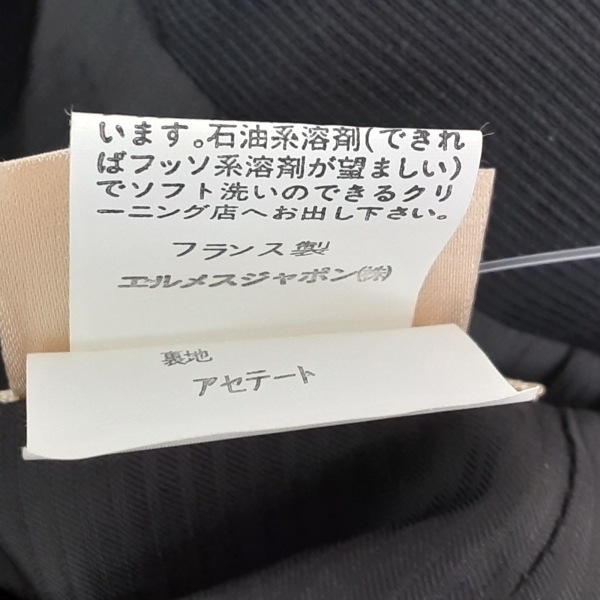 います。石油系溶剤(できれ
ばフッソ系溶剤が望ましい)
でソフト洗いのできるクリ
ーニング店へお出し下さい。
フランス製
エルメスジャポン(株)
裏地
アセテート